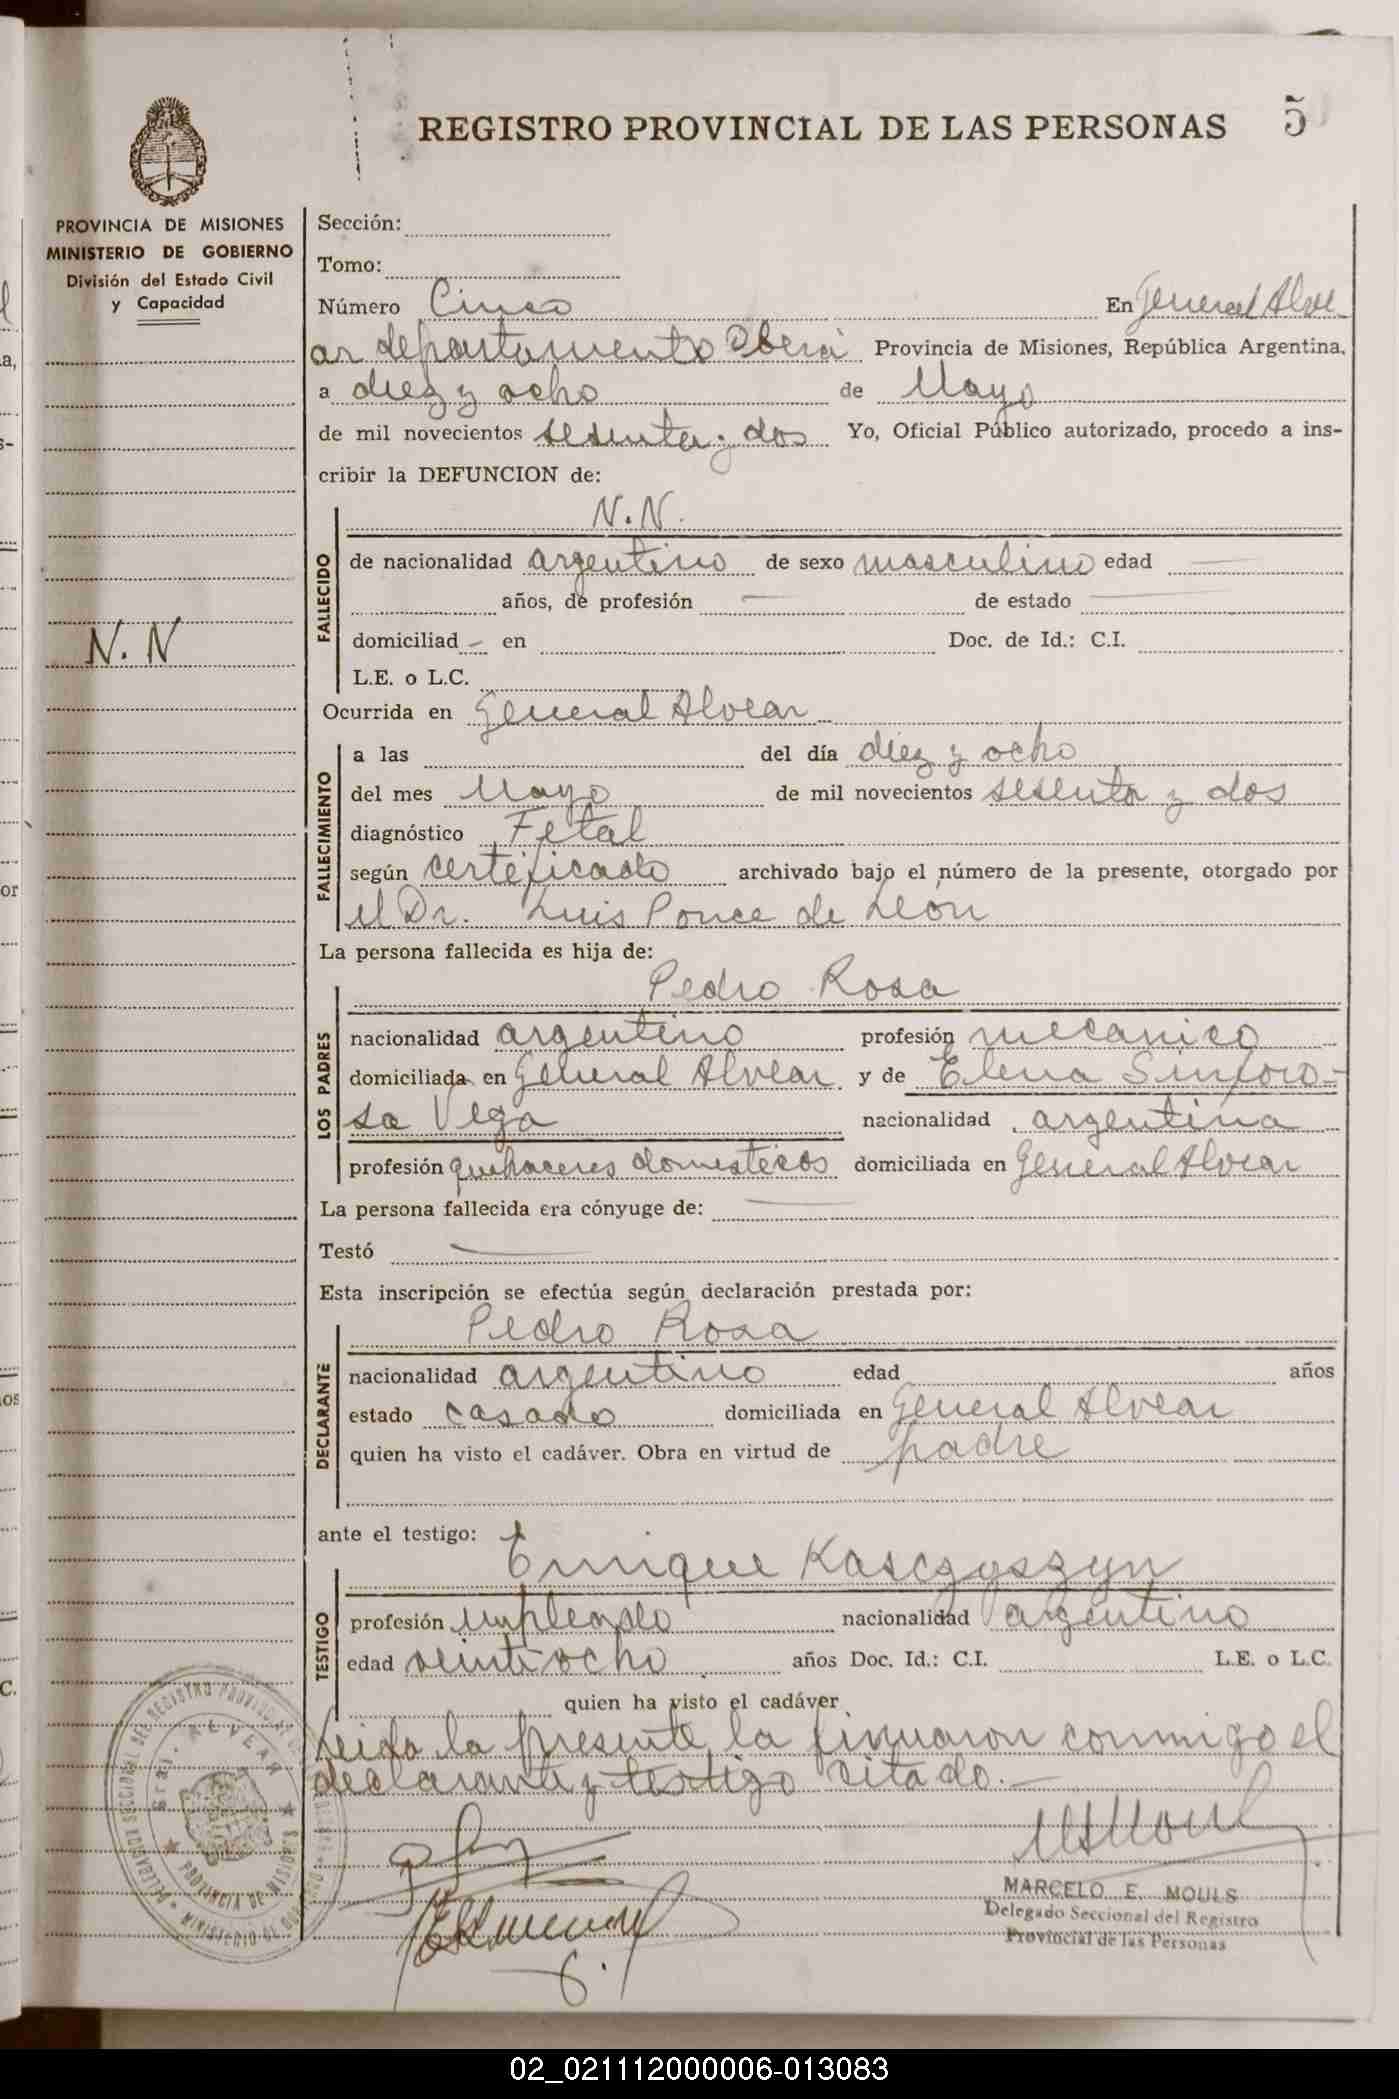 REGISTRO PROVINCIAL DE LAS PERSONAS 5
PROVINCIA DE MISIONES
MINISTERIO DE GOBIERNO
División del Estado Civil
y Capacidad
N. N
Sección:
Tomo:
Número Cinco En General Alve
ar departamento Oberá Provincia de Misiones, República Argentina,
a diez y ocho de Mayo
de mil novecientos sesenta y dos Yo, Oficial Público autorizado, procedo a ins-
cribir la DEFUNCION de:
N. N.
FALLECIDO
de nacionalidad argentino de sexo masculino edad —
años, de profesión — de estado —
domiciliad — en Doc. de Id.: C.I.
L.E. o L.C.
Ocurrida en General Alvear
FALLECIMIENTO
a las del día diez y ocho
del mes Mayo de mil novecientos sesenta y dos
diagnóstico Fetal
según certificado archivado bajo el número de la presente, otorgado por
el Dr. Luis Ponce de León
La persona fallecida es hija de:
Pedro Rosa
LOS PADRES
nacionalidad argentino profesión mecanico
domiciliada en General Alvear y de Elena Sinforo-
sa Vega nacionalidad argentina
profesión quehaceres domesticos domiciliada en General Alvear
La persona fallecida era cónyuge de: —
Testó —
Esta inscripción se efectúa según declaración prestada por:
Pedro Rosa
DECLARANTE
nacionalidad argentino edad años
estado casado domiciliada en General Alvear
quien ha visto el cadáver. Obra en virtud de padre
ante el testigo:
Enrique Kasczyszyn
TESTIGO
profesión empleado nacionalidad argentino
edad veintiocho años Doc. Id.: C.I. L.E. o L.C.
quien ha visto el cadáver
Leida la presente, la firmaron conmigo el
declarante y testigo citado. —
MARCELO E. MOULS
Delegado Seccional del Registro
Provincial de las Personas
DELEGACION SECCIONAL DEL REGISTRO PROVINCIAL DE LAS PERSONAS
GRAL. ALVEAR
PROVINCIA DE MISIONES
MINISTERIO DE GOBIERNO
02_021112000006-013083